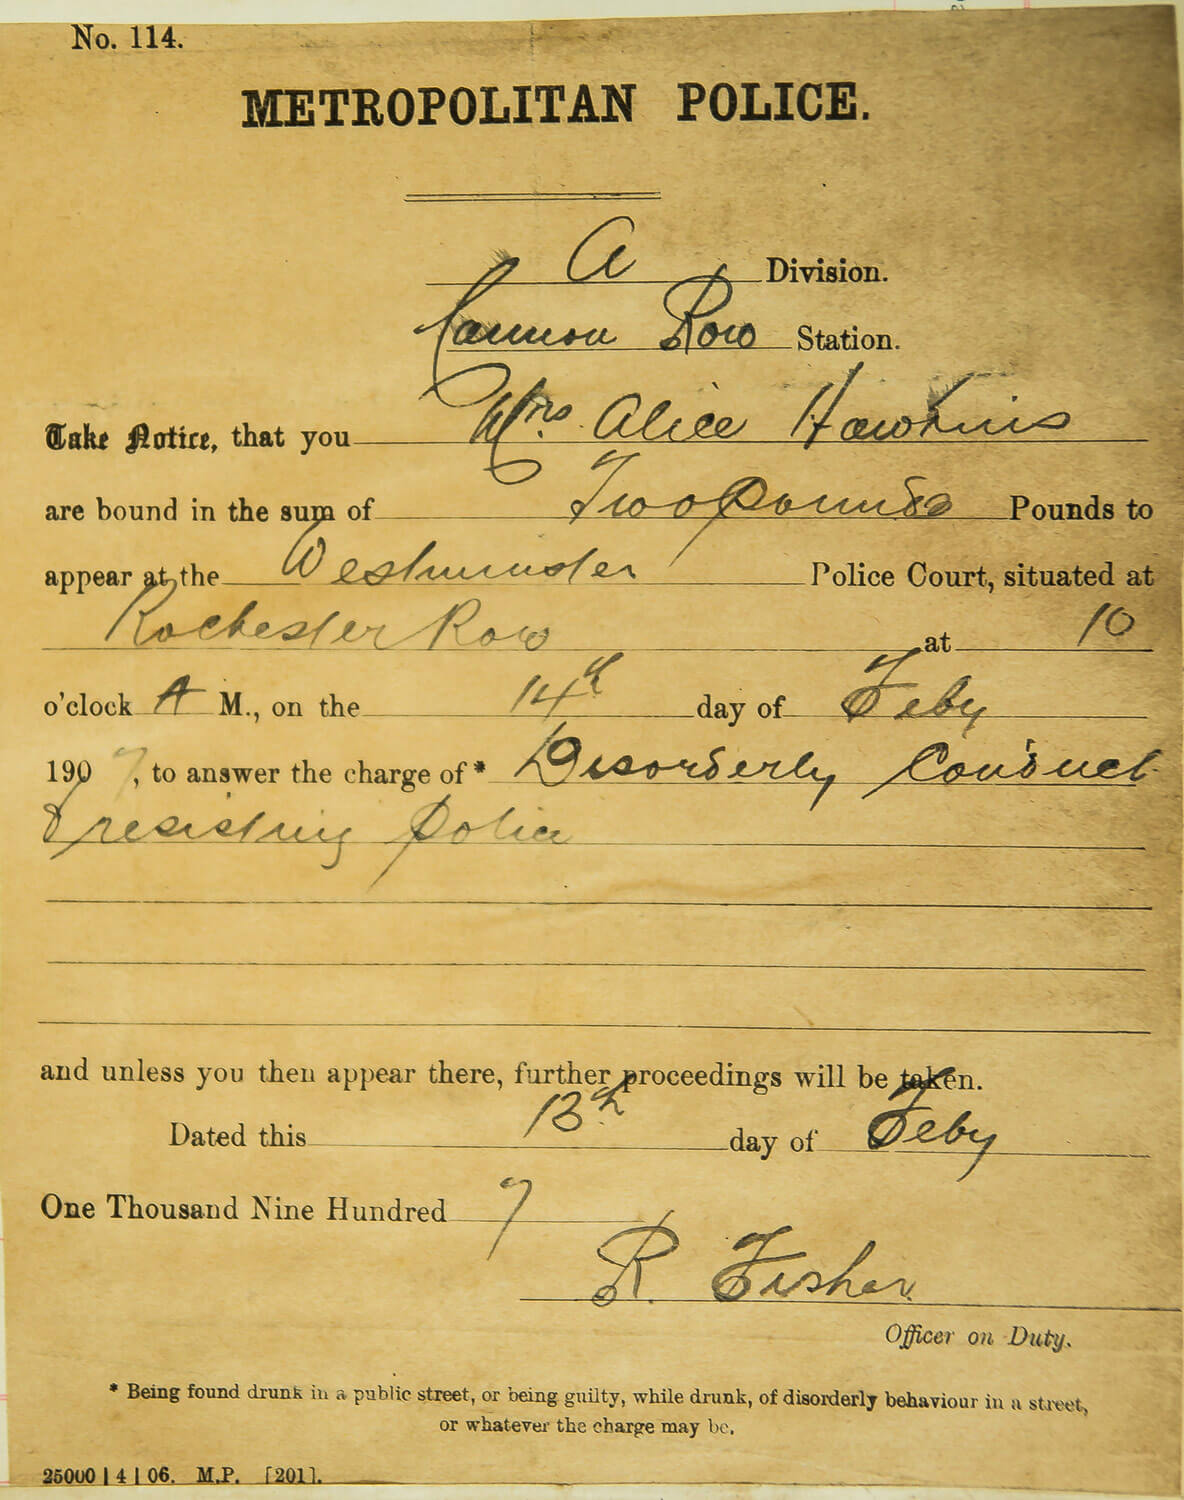 No. 114.
METROPOLITAN POLICE.
A Division.
Cannon Row Station.
Take Notice, that you Mrs. Alice Hawkins
are bound in the sum of Two pounds Pounds to
appear at the Westminster Police Court, situated at
Rochester Row at 10
o'clock A M., on the 14th day of Feby
1907, to answer the charge of* Disorderly Conduct
& resisting police
and unless you then appear there, further proceedings will be taken.
Dated this 13th day of Feby
One Thousand Nine Hundred 7
R. Fisher
Officer on Duty.
* Being found drunk in a public street, or being guilty, while drunk, of disorderly behaviour in a street,
or whatever the charge may be.
25000 | 4 | 06. M.P. [201].